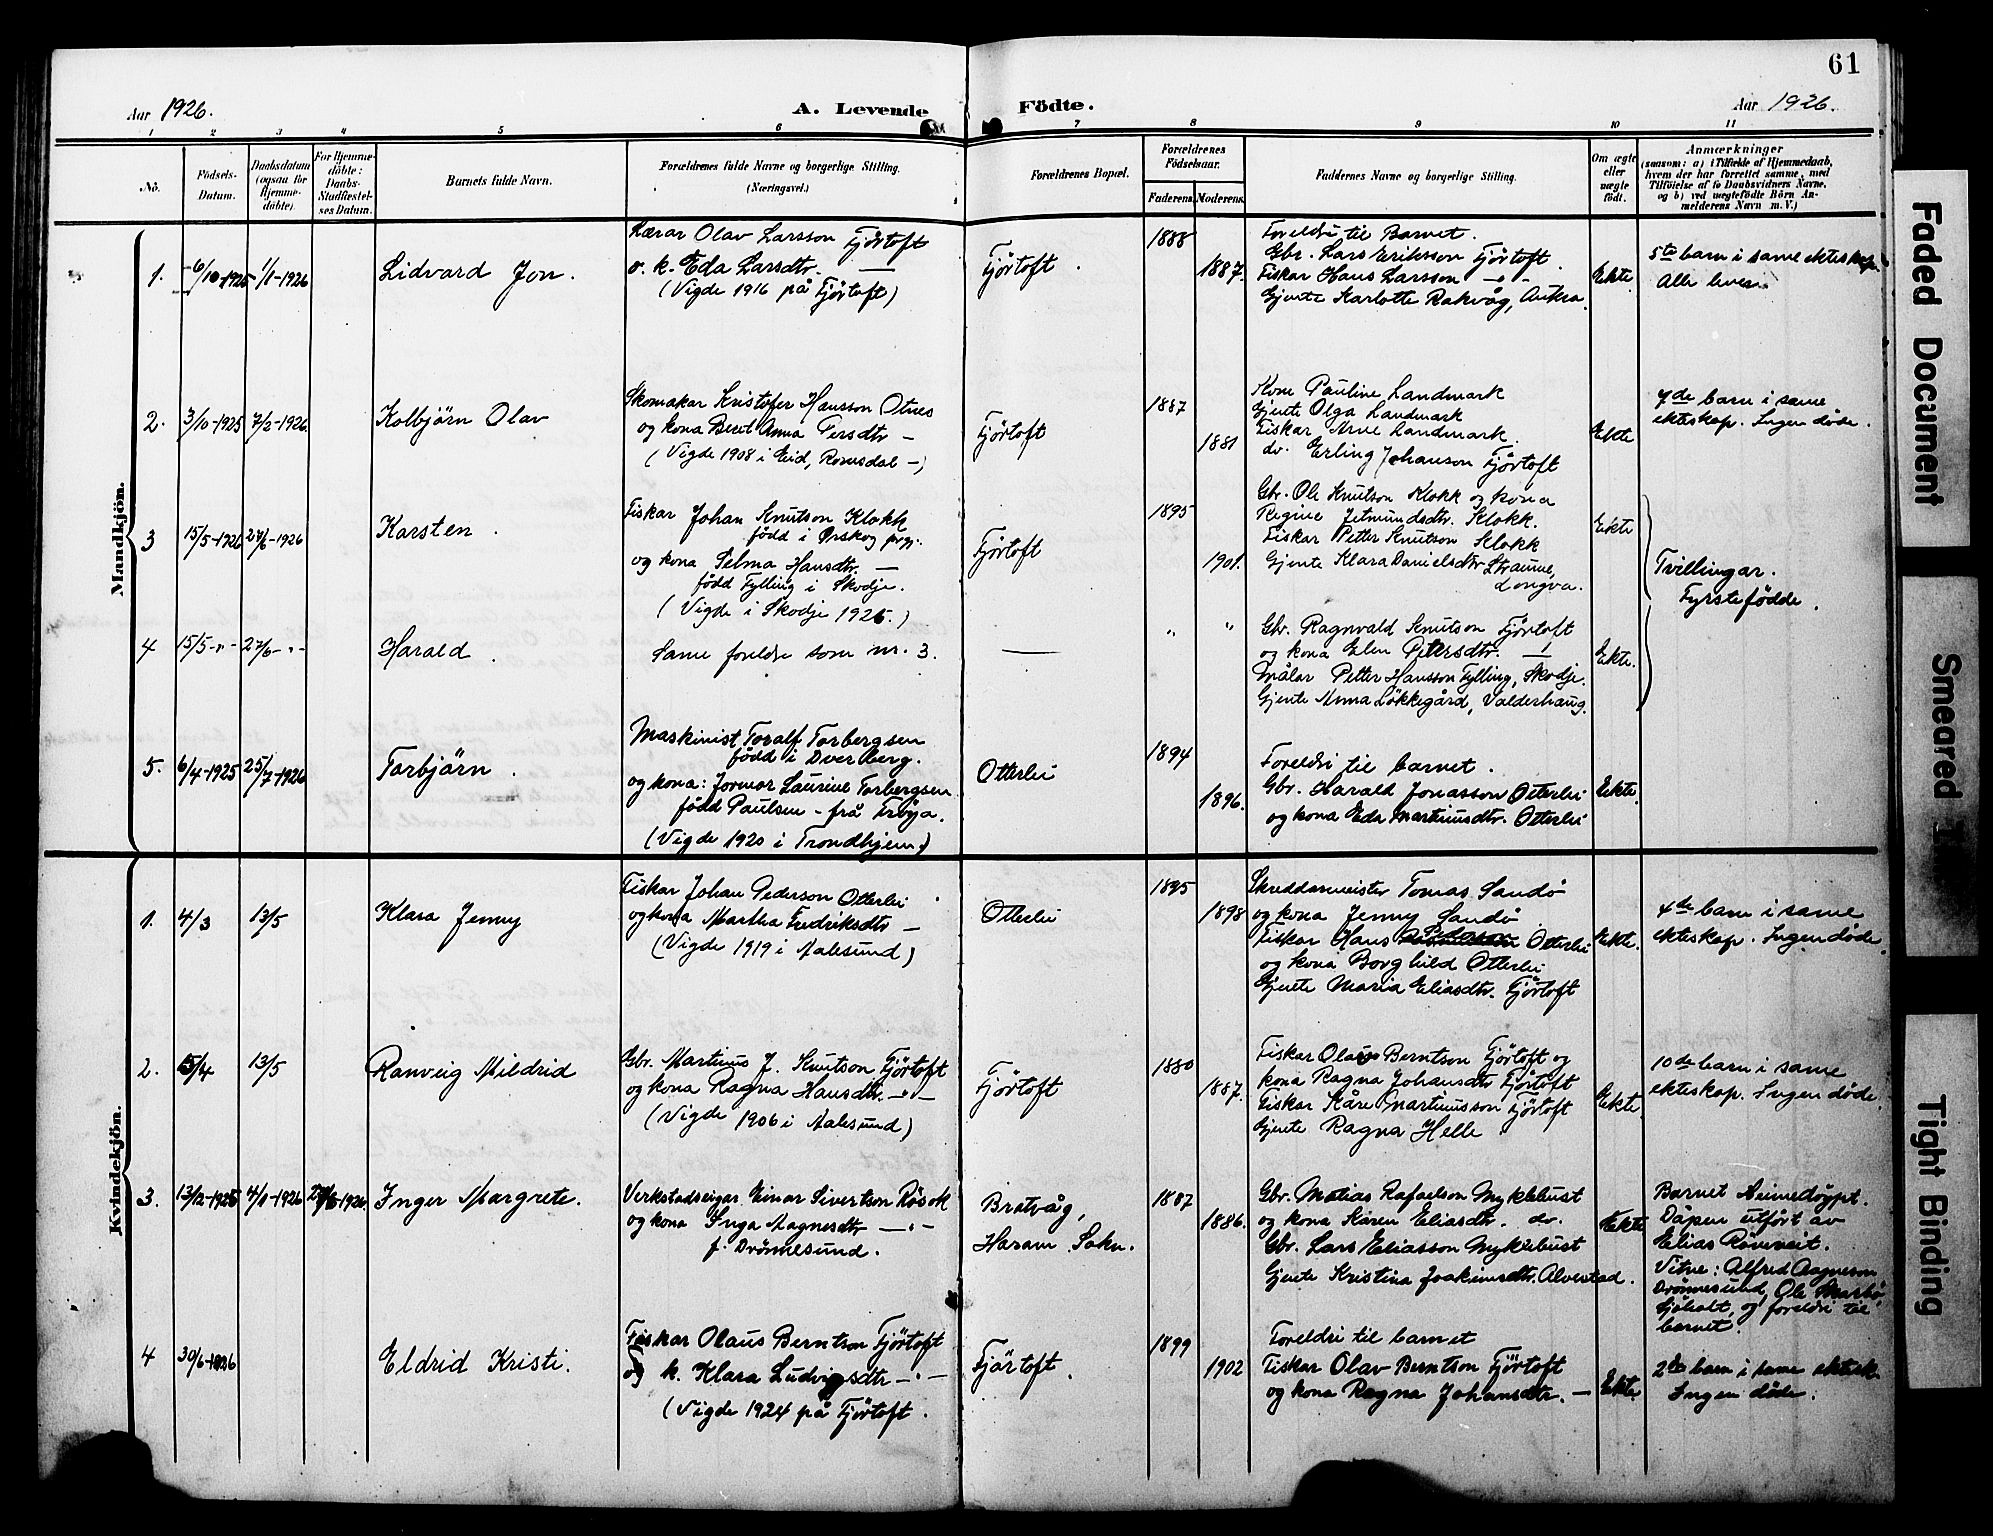 61
Aar 1926.
A. Levende Födte.
Aar 1926.
1 2 3 4 5 6 7 8 9 10 11
No.
Födsels-
Datum.
Daabsdatum
(ogsaa for
Hjemme-
döbte).
For Hjemme-
döbte:
Daabs-
Stadfæstel-
ses Datum.
Barnets fulde Navn.
Forældrenes fulde Navne og borgerlige Stilling.
(Næringsvei.)
Forældrenes Bopæl.
Forældrenes
Födselsaar.
Faderens Moderens
Faddernes Navne og borgerlige Stilling.
Om ægte
eller
uægte
födt.
Anmærkninger
(saasom: a) i Tilfælde af Hjemmedaab,
hvem der har forrettet samme, med
Tilföielse af to Daabsvidners Navne,
og b) ved uægtefödte Börn An-
melderens Navn m. V.)
Mandkjön.
1. 6/10-1925 1/1-1926 Lidvard Jon.
Lærar Olav Larsson Fjörtoft
o. k. Eda Larsdtr. —
(Vigde 1916 på Fjörtoft)
Fjörtoft.
1888
1887.
Foreldri til Barnet.
Gbr. Lars Eriksson Fjörtoft.
Fiskar Hans Larsson -"-
Gjente Karlotte Rakvåg, Aukra.
Ekte
5te barn i same ekteskap.
Alle lever.
2. 3/10-1925 7/2-1926 Kolbjörn Olav
Skomakar Kristofer Hansson Otnes
og kona Beret Anna Persdtr —
(Vigde 1908 i Eid, Romsdal -)
Fjörtoft
1887
1881
Kone Pauline Landmark
Gjente Olga Landmark
Fiskar Arne Landmark.
do. Erling Johanson Fjörtoft
Ekte
4de barn i same
ekteskap. Ingen døde.
3 15/5-1926 27/6-1926 Karsten.
Fiskar Johan Knutson Klokk
född i Ørskog prgj.
og kona Selma Hansdtr. —
född Fylling i Skodje.
(Vigde i Skodje 1925.)
Fjörtoft
1895
1901.
Gbr. Ole Knutson Klokk og kona
Regine Jetmundsdtr. Klokk.
Fiskar Petter Knutson Klokk
Gjente Klara Danielsdtr Straume,
Longva.
Ekte
Tvillingar.
Fyrstefödde.
4 15/5-"- 27/6-"- Harald.
Same foreldre som nr. 3.
—
" "
Gbr. Ragnvald Knutson Fjörtoft
og kona Elen Petersdtr. —
Målar Petter Hansson Fylling, Skodje.
Gjente Anna Løkkegård, Valderhaug.
Ekte.
5. 6/4-1925 25/7-1926 Torbjörn.
Maskinist Toralf Torbergsen
född i Dverberg.
og kona: Jormor Laurine Torbergsen
född Paulsen - frå Frøya.
(Vigde 1920 i Trondhjem)
Otterlei
1894
1896.
Foreldri til barnet.
Gbr. Harald Jonasson Otterlei
og kona Eda Martinusdtr. Otterlei
Ekte.
Kvindekjön.
1. 4/3 13/5 Klara Jenny
Fiskar Johan Pederson Otterlei
og kona Martha Fredriksdtr —
(Vigde 1919 i Aalesund)
Otterlei
1895
1898
Skreddarmeister Tomas Sandö
og kona Jenny Sandö
Pederson
Fiskar Hans Otterlei
og kona Borghild Otterlei
Gjente Maria Eliasdtr. Fjörtoft
Ekte.
4de barn i same
ekteskap. Ingen døde.
2. 5/4 13/5 Ranveig Mildrid
Gbr. Martinus J. Knutson Fjörtoft
og kona Ragna Hansdtr. -"-
(Vigde 1906 i Aalesund)
Fjörtoft
1880
1887.
Fiskar Olaus Berntson Fjörtoft og
kona Ragna Johansdtr Fjörtoft
Fiskar Kåre Martinusson Fjörtoft
Gjente Ragna Helle
Ekte
10de barn i same
ekteskap. Ingen døde.
3. 13/12-1925 4/1-1926 27/6-1926 Inger Margrete.
Verkstadseigar Einar Sivertson Røsok
og kona Inga Magnesdtr -"-
f. Drönnesund.
Bratvåg,
Haram Sokn.
1887
1886.
Gbr. Matias Rafaelson Myklebust
og kona Karen Eliasdtr. do.
Gbr. Lars Eliasson Myklebust
Gjente Kristina Joakimsdtr. Alvestad.
Ekte
Barnet Heimedøypt.
Dåpen utført av
Elias Röneveit.
Vitne: Alfred Magneson
Drönnesund, Ole Skarbö
Sjöholt, og foreldri til
barnet.
4 30/6-1926 Eldrid Kristi.
Fiskar Olaus Berntson Fjörtoft
og k. Klara Ludvigsdtr -"-
(Vigde 1924 på Fjörtoft.
Fjörtoft.
1899
1902
Foreldri til barnet
Fiskar Olav Berntson Fjörtoft
og kona Ragna Johansdtr. —
Ekte
2de barn i same ektesk.
Ingen døde.
Faded Document
Smeared
Tight Binding